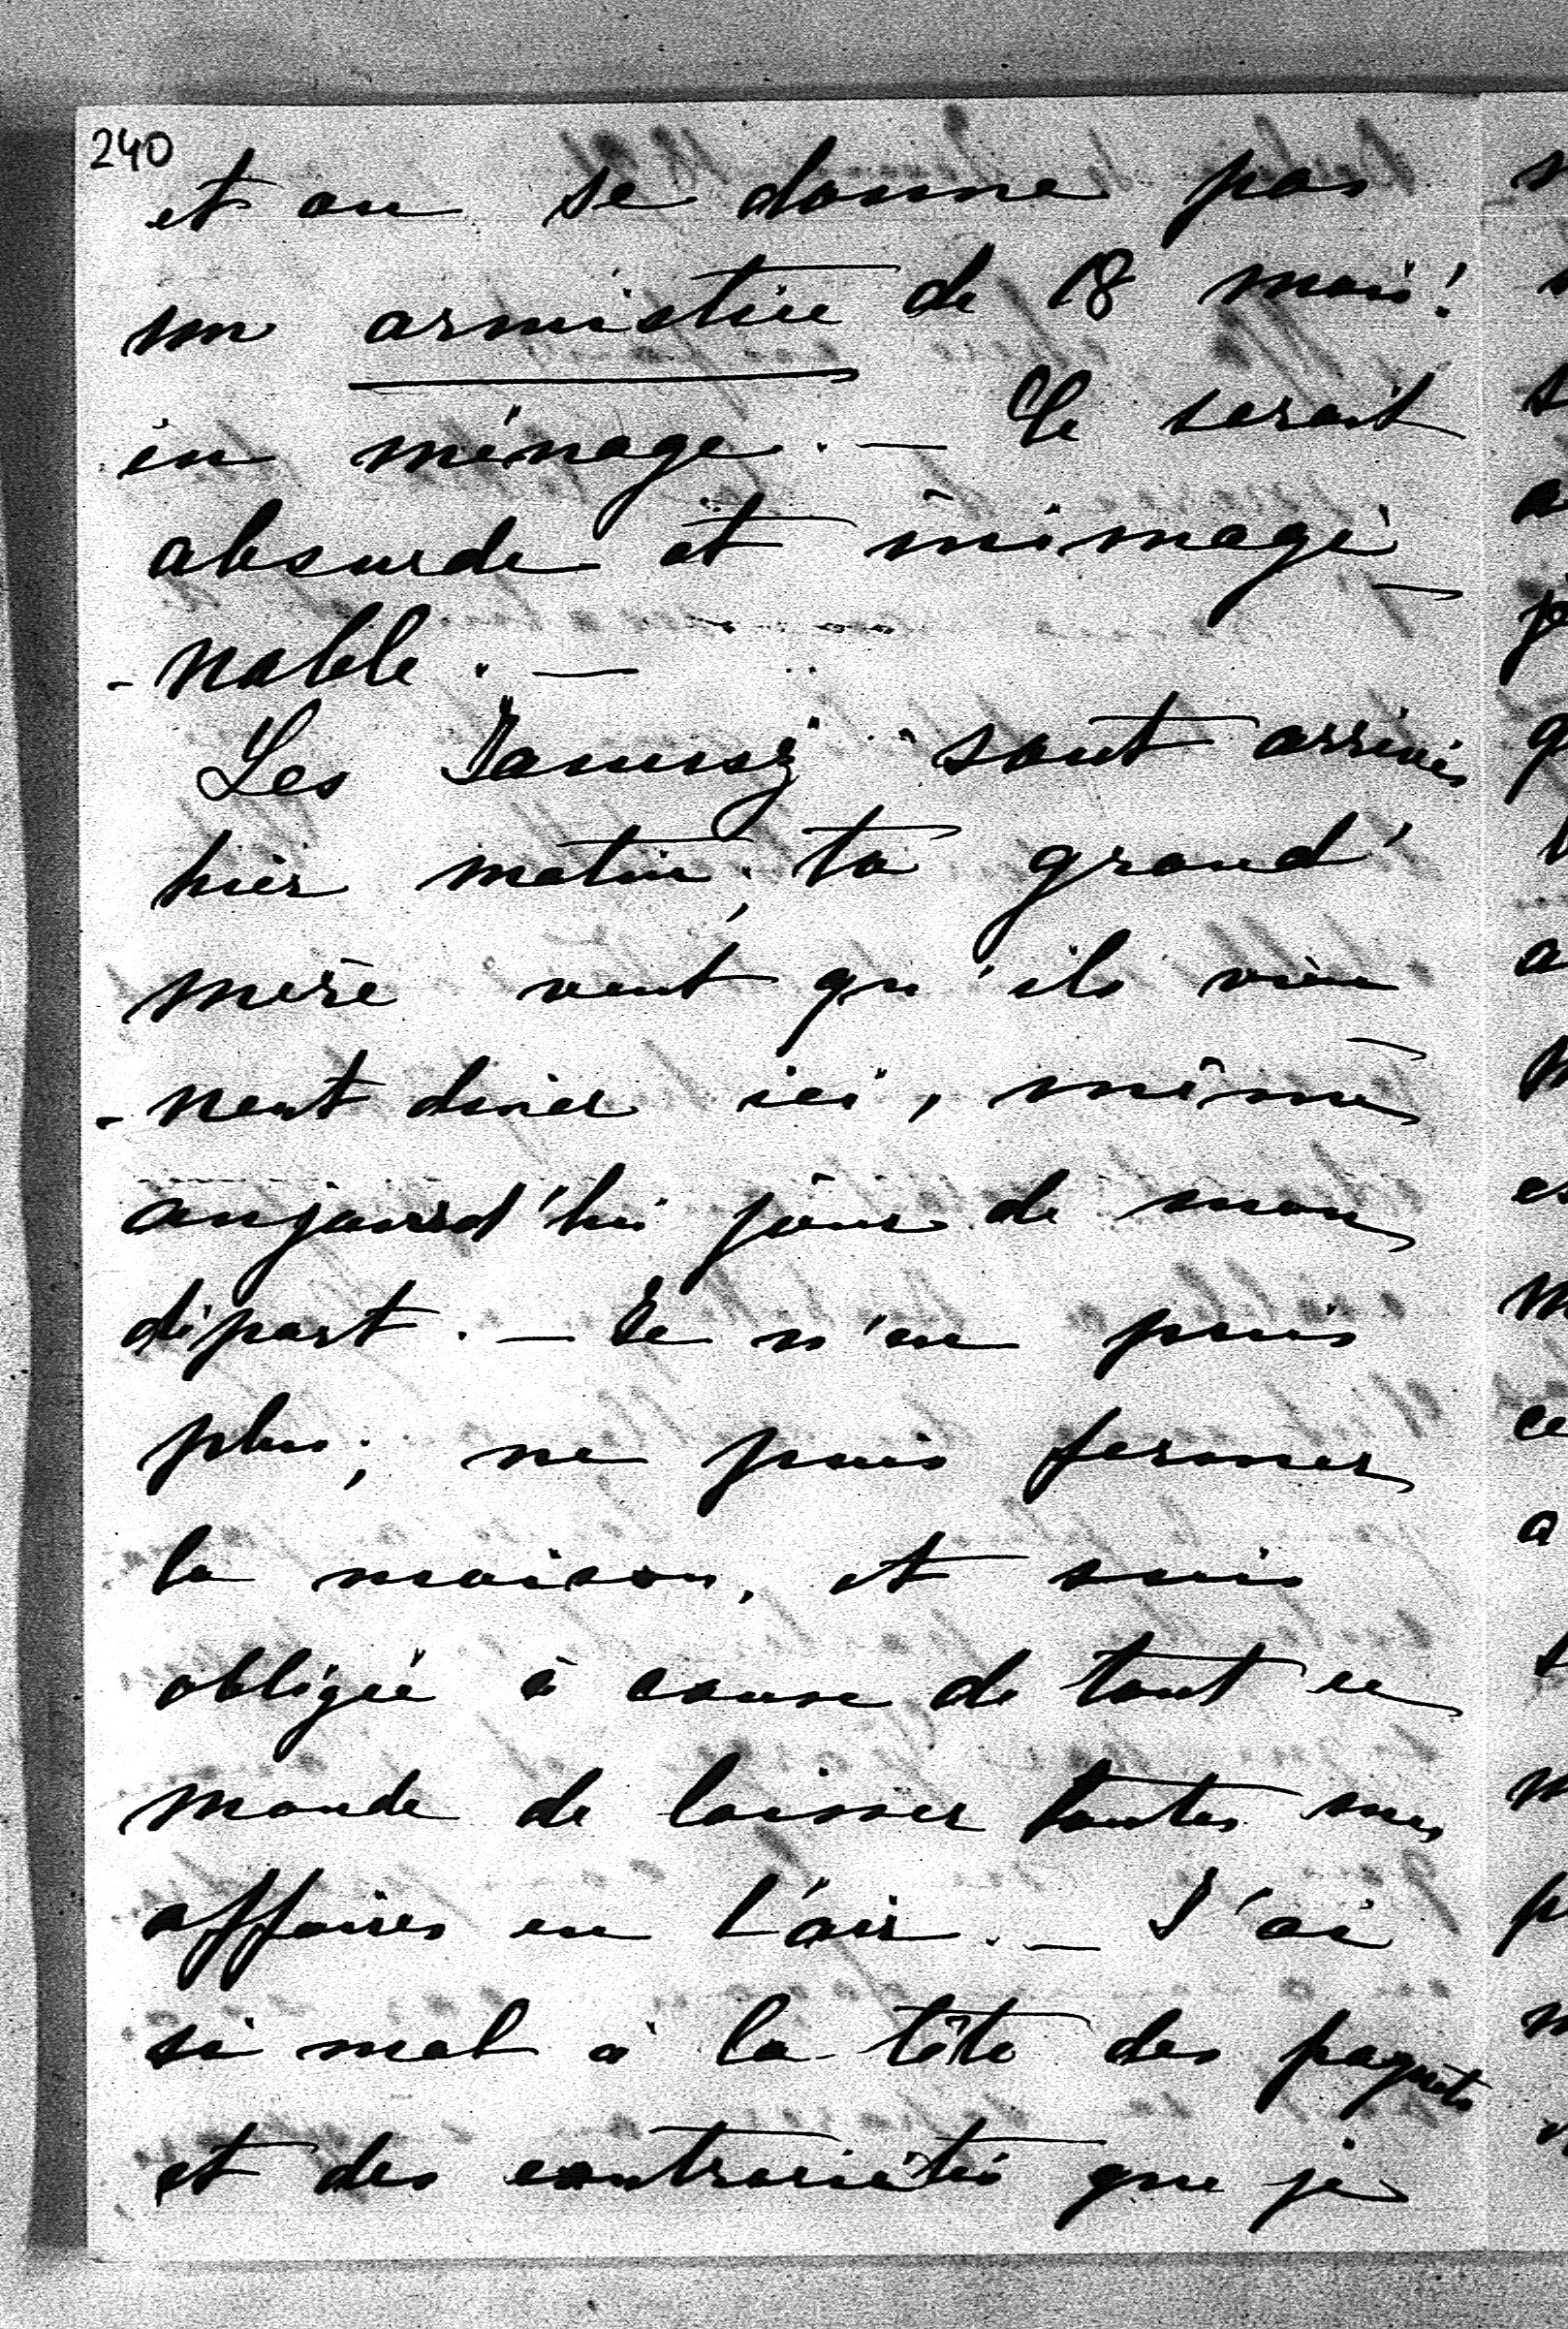 240
et on se donne pas
un armistice de 18 mois!
en ménage. — Ce serait
absurde et inimagi-
-nable. —
Les Janusz sont arrivés
hier matin, ta grand'
mère veut qu'ils vien
-nent diner ici, même
aujourd'hui jour de mon
départ. — Je n'en puis
plus; ne puis fermer
la maison, et suis
obligée à cause de tout ce
monde de laisser toutes mes
affaires en l'air. — J'ai
si mal à la tête des paquets
et des contrariétés que je